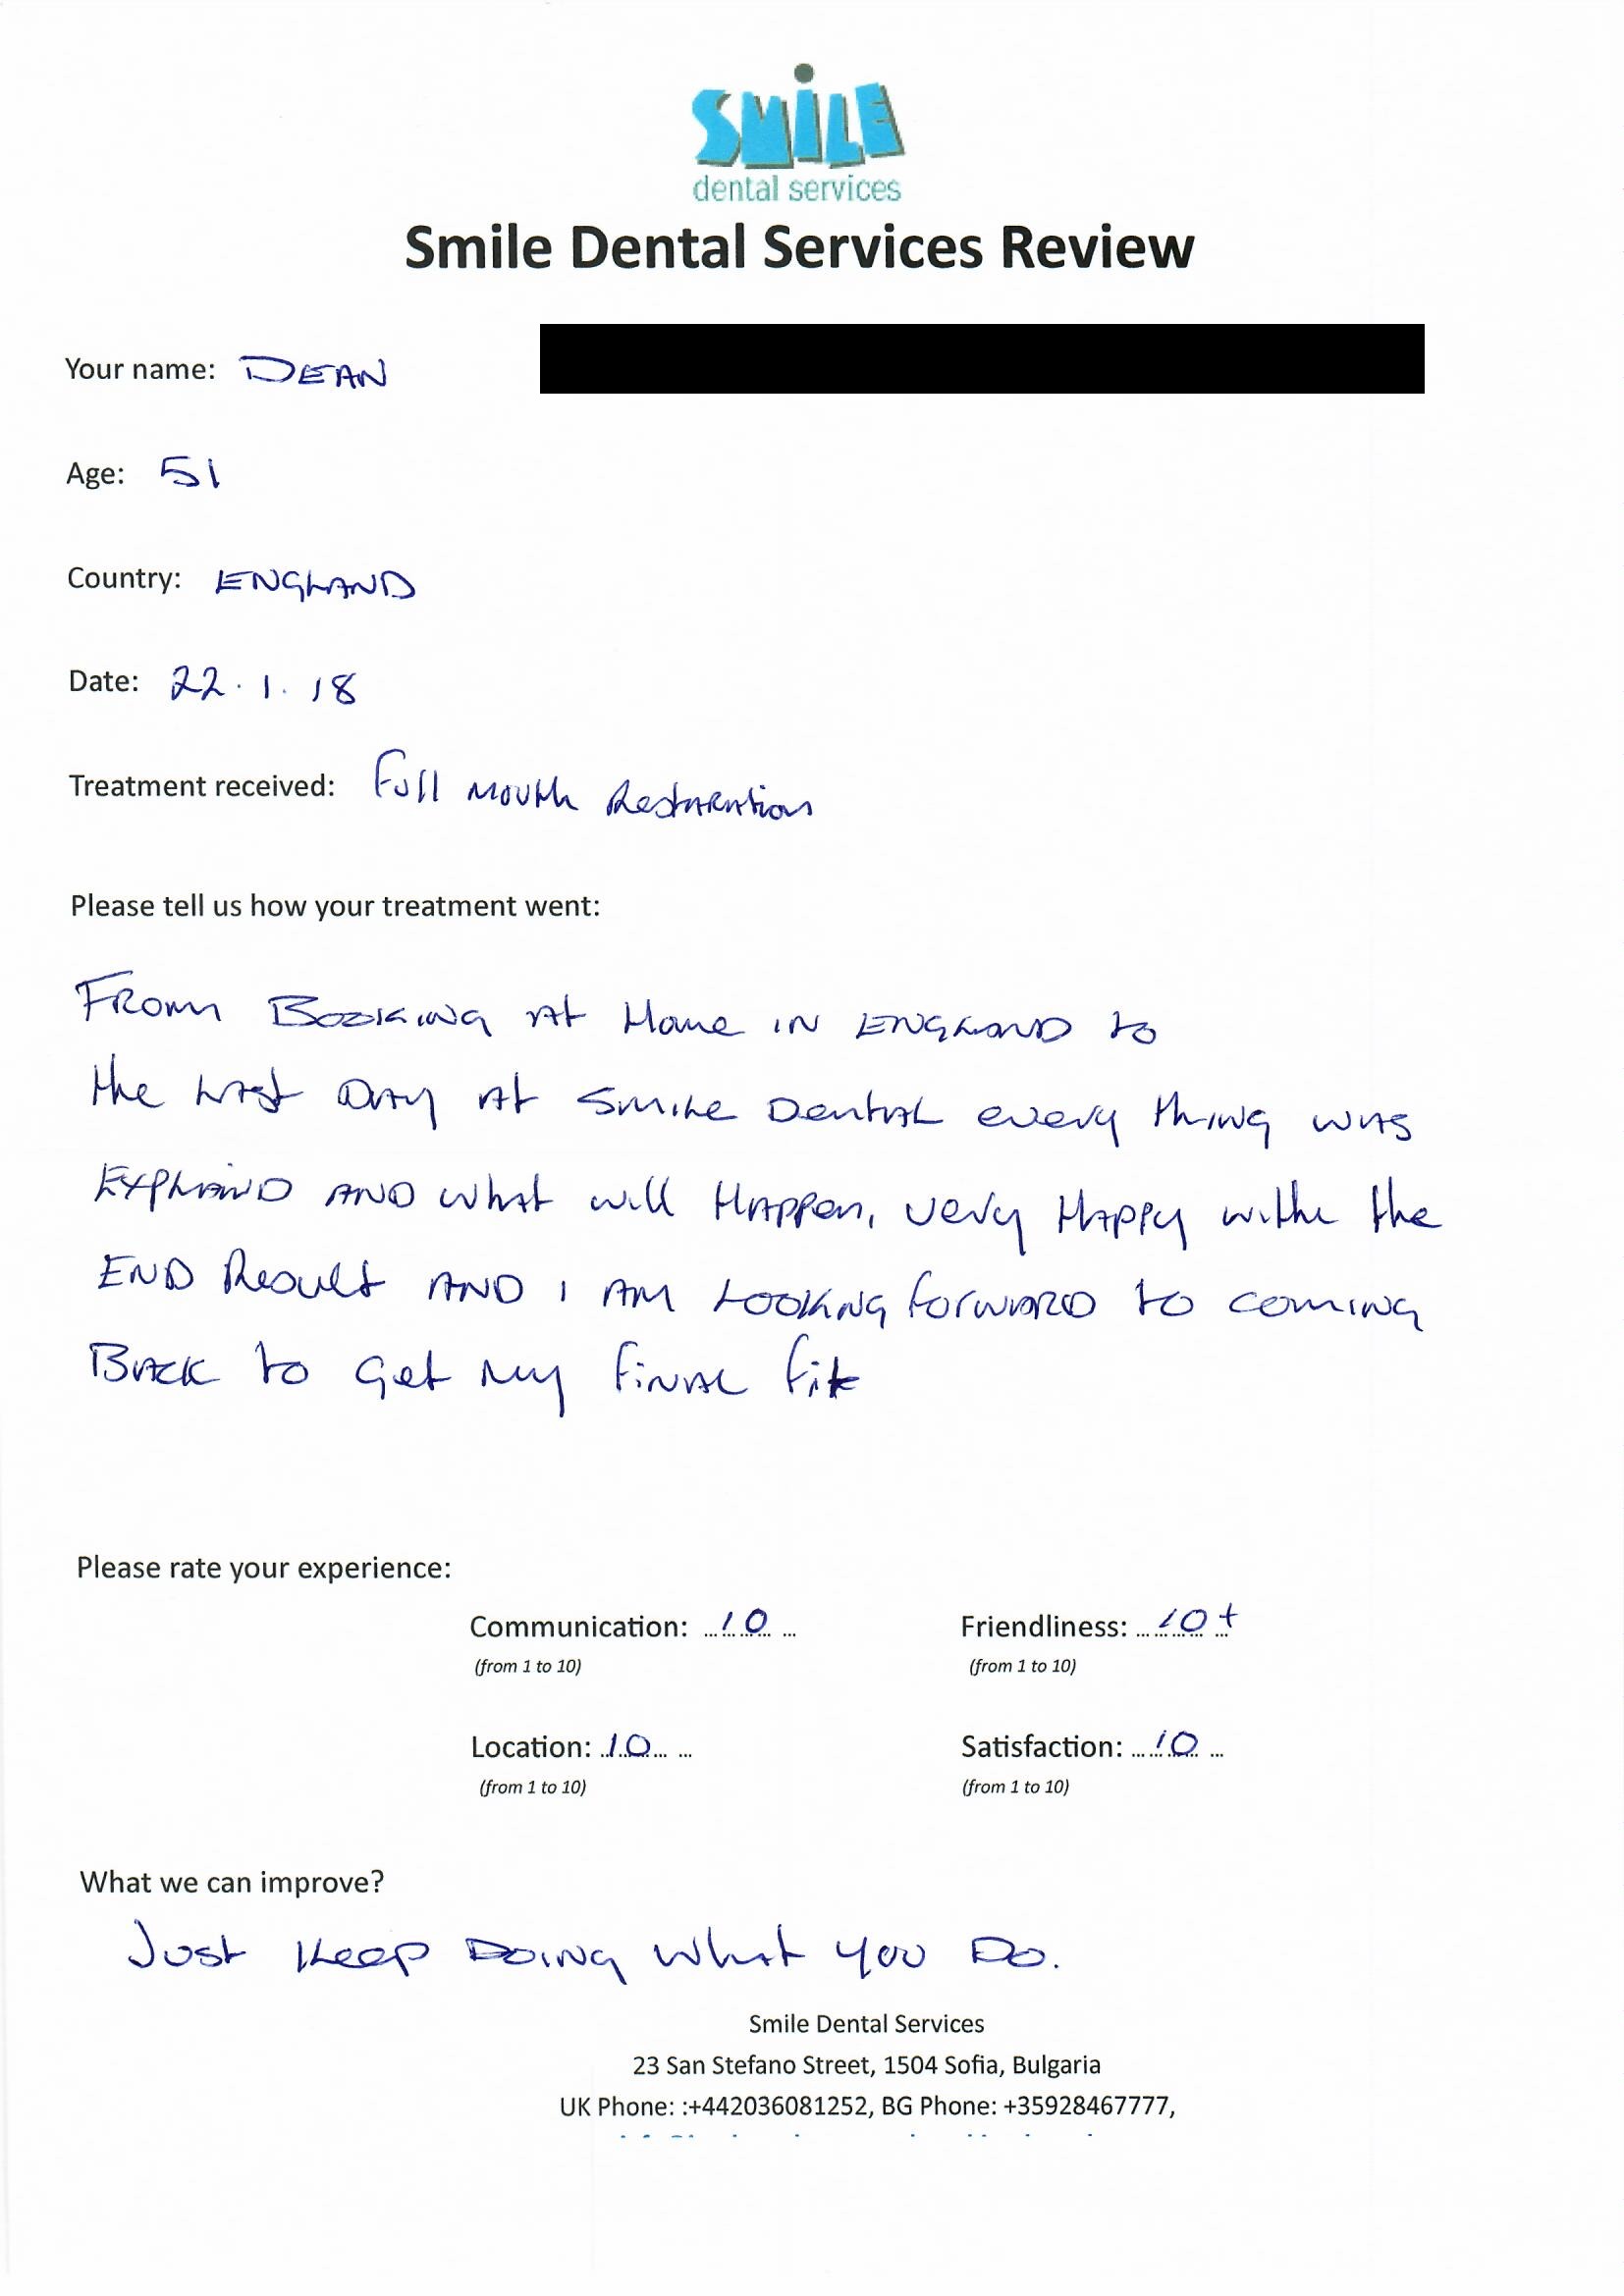 SMiLE
dental services
Smile Dental Services Review
Your name: DEAN
Age: 51
Country: ENGLAND
Date: 22.1.18
Treatment received: Full Mouth Restoration
Please tell us how your treatment went:
From Booking At Home in England to
the Last Day at Smile Dental every thing was
Explaind and what will Happen, very Happy withe the
END Result AND I AM Looking forward to coming
Back to get my final fit
Please rate your experience:
Communication: ...10... Friendliness: ...10+
(from 1 to 10) (from 1 to 10)
Location: ...10... Satisfaction: ...10...
(from 1 to 10) (from 1 to 10)
What we can improve?
Just Keep Doing what you Do.
Smile Dental Services
23 San Stefano Street, 1504 Sofia, Bulgaria
UK Phone: :+442036081252, BG Phone: +35928467777,